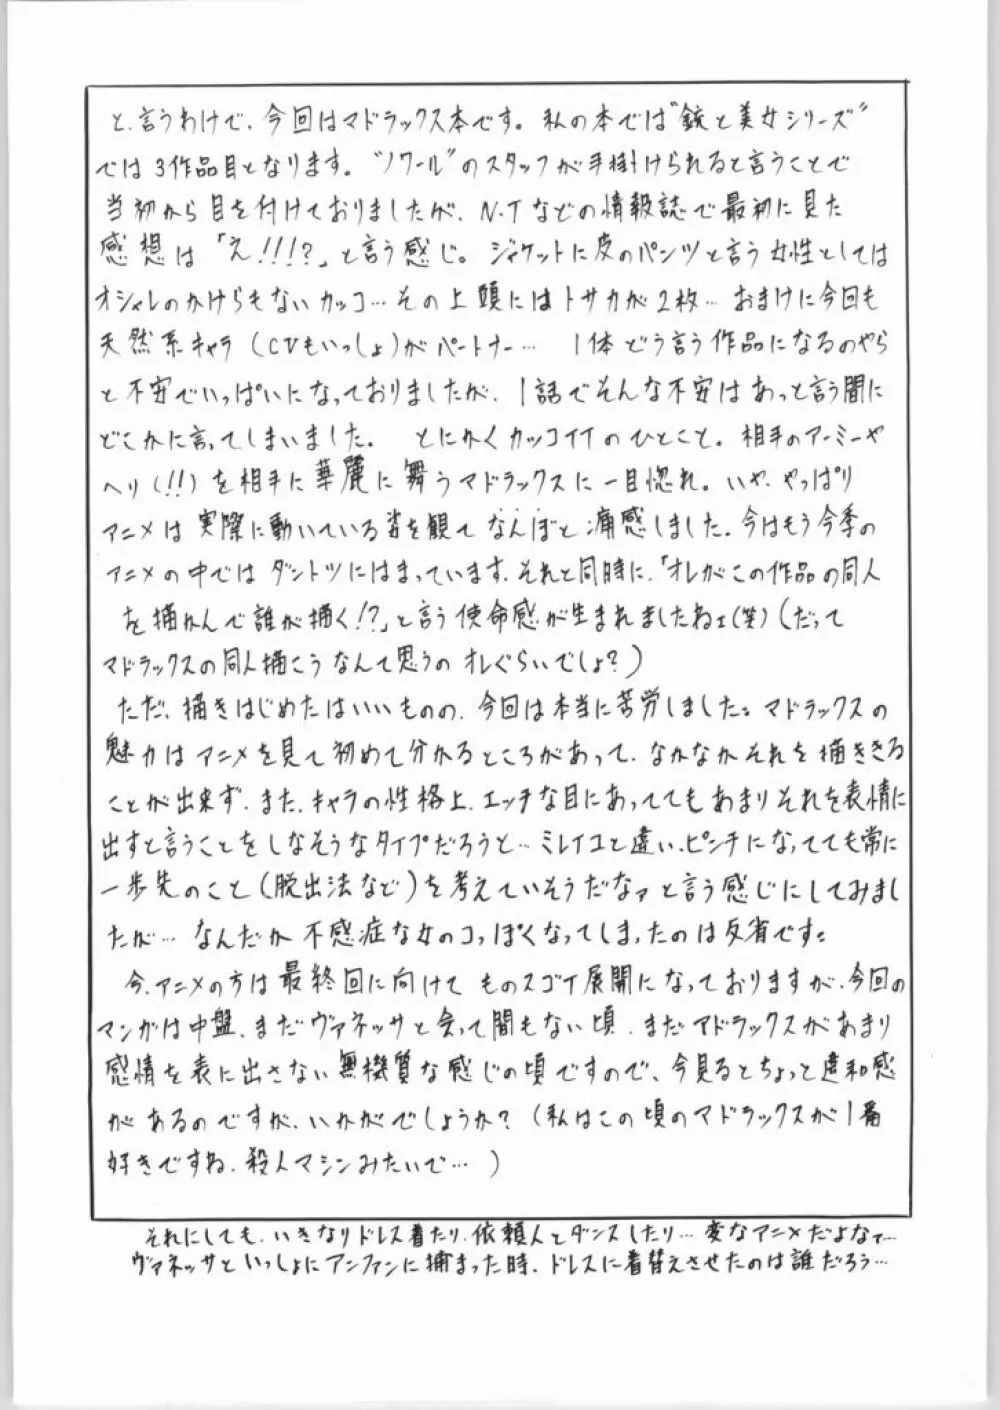 と、言うわけで、今回はマドラックス本です。私の本では"銃と美女シリーズ"
では3作品目となります。"ノワール"のスタッフが手掛けられると言うことで
当初から目を付けておりましたが、N.Tなどの情報誌で最初に見た
感想は「え!!!?」と言う感じ。ジャケットに皮のパンツと言う女性としては
オシャレのかけらもないカッコ…その上頭にはトサカが2枚…おまけに今回も
天然系キャラ(CVもいっしょ)がパートナー… 1体どう言う作品になるのやら
と不安でいっぱいになっておりましたが、1話でそんな不安はあっと言う間に
どこかに言ってしまいました。 とにかくカッコイイのひとこと。相手のアーミーや
ヘリ(!!)を相手に華麗に舞うマドラックスに一目惚れ。いや、やっぱり
アニメは実際に動いている姿を観てなんぼと痛感しました。今はもう今季の
アニメの中ではダントツにはまっています。それと同時に、「オレがこの作品の同人
を描かんで誰が描く!?」と言う使命感が生まれましたねェ(笑)(だって
マドラックスの同人描こうなんて思うのオレぐらいでしょ?)
ただ、描きはじめたはいいものの、今回は本当に苦労しました。マドラックスの
魅力はアニメを見て初めて分かるところがあって、なかなかそれを描ききる
ことが出来ず、また、キャラの性格上、エッチな目にあっててもあまりそれを表情に
出すと言うことをしなそうなタイプだろうと…ミレイユと違い、ピンチになってても常に
一歩先のこと(脱出法など)を考えていそうだなァと言う感じにしてみまし
たが…なんだか不感症な女のコっぽくなってしまったのは反省です。
今、アニメの方は最終回に向けてものスゴイ展開になっておりますが、今回の
マンガは中盤、まだヴァネッサと会って間もない頃、まだマドラックスがあまり
感情を表に出さない無機質な感じの頃ですので、今見るとちょっと違和感
があるのですが、いかがでしょうか?(私はこの頃のマドラックスが1番
好きですね、殺人マシンみたいで…)
それにしても、いきなりドレス着たり、依頼人とダンスしたり…変なアニメだよなァ…
ヴァネッサといっしょにアンファンに捕まった時、ドレスに着替えさせたのは誰だろう…